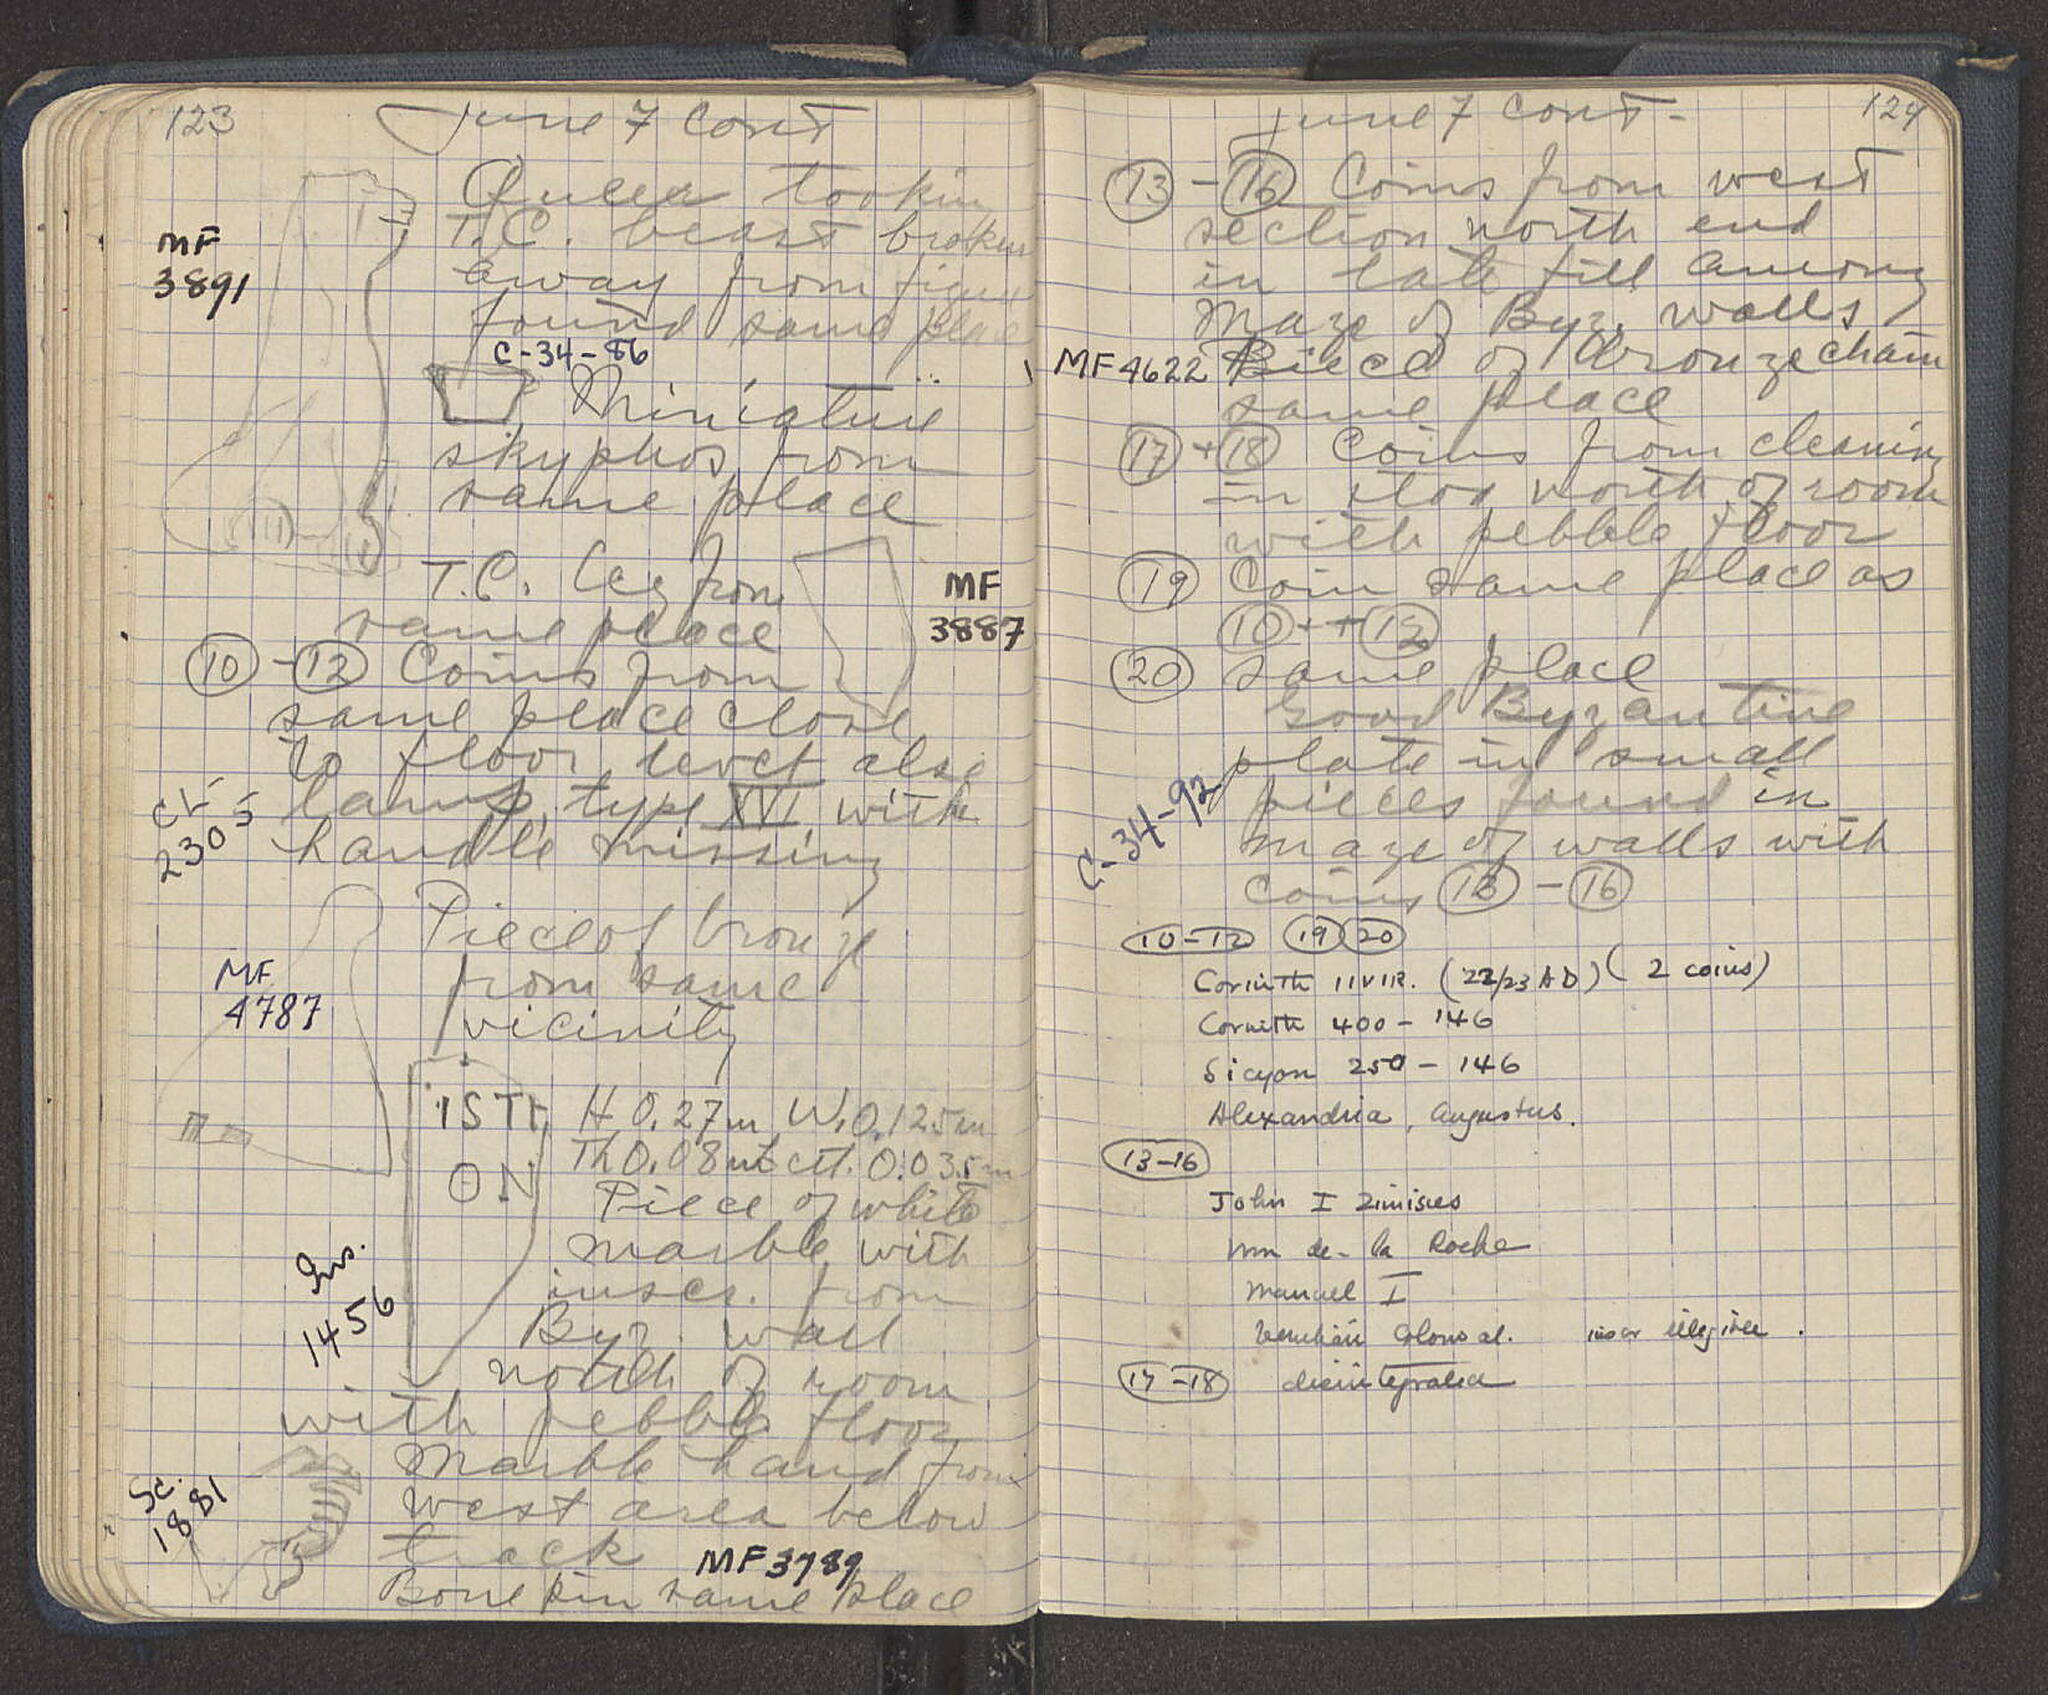 123
June 7 cont
Queer lookin
T.C. beast broken
away from figure
found same place
MF
3891
C-34-86
Miniature
skyphos from
same place
T.C. leg from
same place
MF
3887
10 - 12 Coins from
same place close
to floor level also
lamp, type XVI, with
handle missing
CL-
2305
Piece of bronze
from same
vicinity
MF
4787
ISTH
ON
H 0.27m W. 0.125m
Th 0.08m Lett. 0.035m
Piece of white
marble with
inscr. from
Byz. wall
north of room
with pebble floor
Ins.
1456
Marble hand from
west area below
track
Sc.
1881
MF 3789
Bone pin same place
June 7 cont-
124
13 - 16 Coins from west
section north end
in late fill among
maze of Byz. walls
MF 4622 Piece of bronze chain
same place
17 + 18 Coins from cleaning
in stoa north of room
with pebble floor
19 Coin same place as
10 + + 12
20 same place
Good Byzantine
plate in small
pieces found in
maze of walls with
coins 13 - 16
C-34-92
10-12 19 20
Corinth IIVIR. (22/23 AD) (2 coins)
Corinth 400-146
Sicyon 250-146
Alexandria, Augustus.
13-16
John I Zimisces
de-la Roche
Manuel I
Venetian Colonial.
17-18 disintegrated